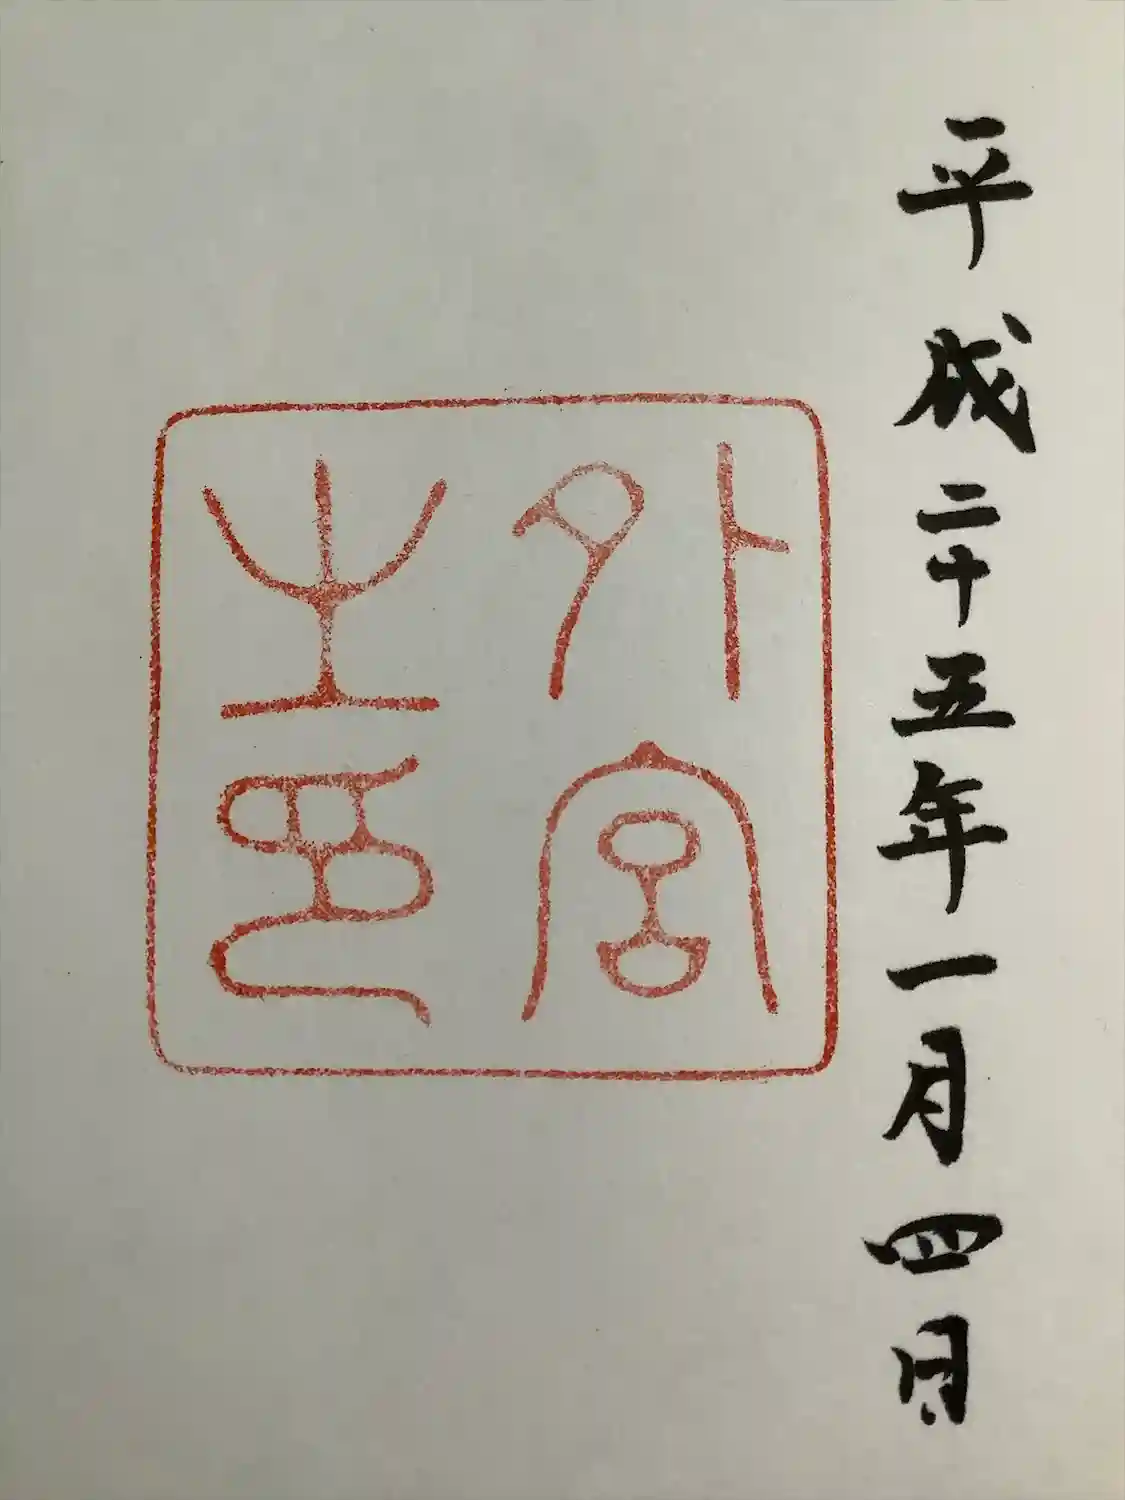 平成二十五年一月四日
外宮
之印